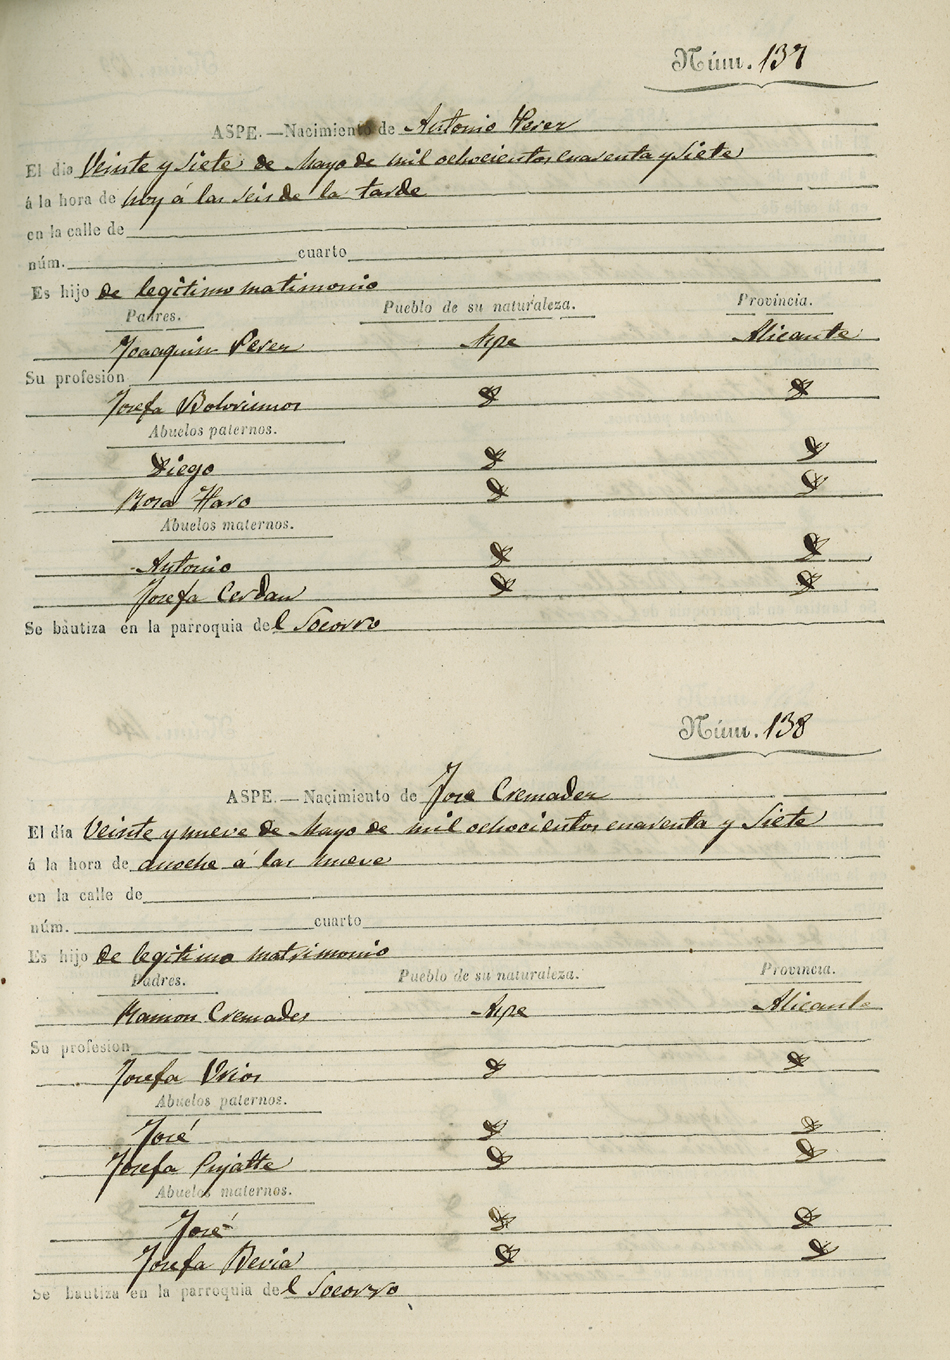 Núm. 137
ASPE.—Nacimiento de Antonio Perez
El dia Veinte y Siete de Mayo de mil ochocientos cuaventa y Siete
á la hora de hoy á las seis de la tarde
en la calle de
núm. cuarto
Es hijo de legitimo matimonio
Padres. Pueblo de su naturaleza. Provincia.
Joaaquin Perez Aspe Alicante
Su profesion
Josefa D D
Abuelos paternos.
Diego D D
Rosa Havo D D
Abuelos maternos.
Antonio D D
Josefa Cerdan D D
Se bautiza en la parroquia del Socorro
Núm. 138
ASPE.—Nacimiento de Jose Cremades
El día Veinte y nueve de Mayo de mil ochocientos cuaventa y Siete
á la hora de anoche á las nueve
en la calle de
núm. cuarto
Es hijo de legitimo matrimonio
Padres. Pueblo de su naturaleza. Provincia.
Ramon Cremades Aspe Alicante
Su profesion
Josefa Urios D D
Abuelos paternos.
José D D
Josefa Pujalte D D
Abuelos maternos.
José D D
Josefa Bevia D D
Se bautiza en la parroquia del Socorro